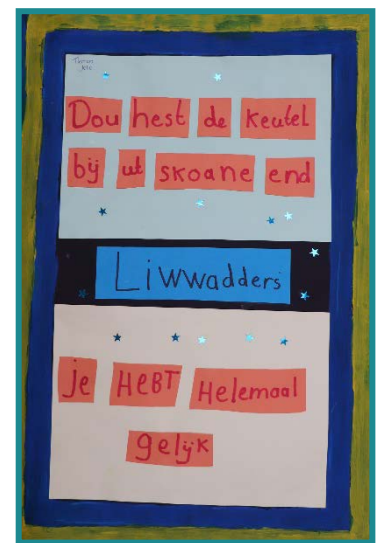 Dou hest de keutel
bij ut skoane end
Liwwadders
je HEBT Helemaal
gelijk